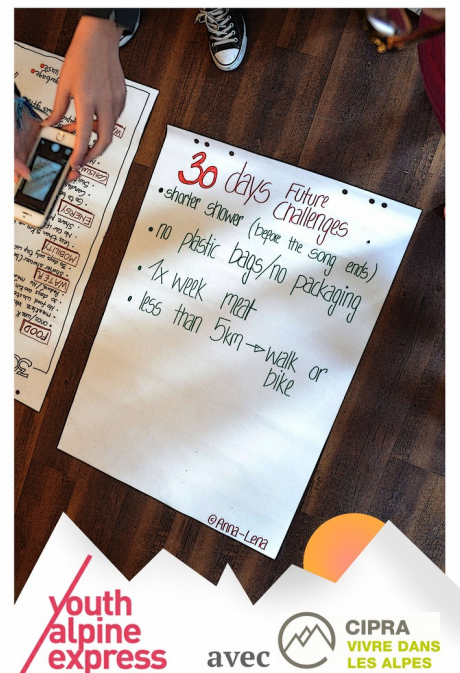 30 days Future
Challenges
• shorter shower (before the song ends)
• no plastic bags/no packaging
• 1x week meat
• less than 5km → walk or
bike
©Anna-Lena
CONSUM
ENERGY
MOBILITY
WATER
FOOD
youth
alpine
express
avec
CIPRA
VIVRE DANS
LES ALPES